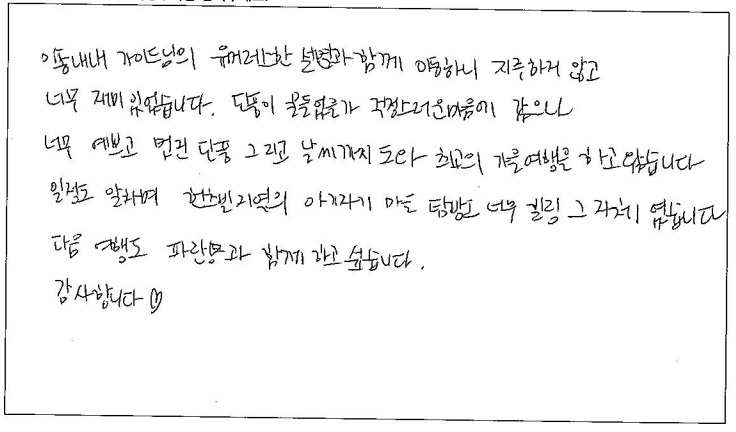 이동내내 가이드님의 유머러스한 설명과 함께 이동하니 지루하지 않고
너무 재미있었습니다. 단풍이 물들었을가 걱정스러운마음에 갔으나
너무 예쁘고 멋진 단풍 그리고 날씨까지 도와 최고의 가을여행을 하고왔습니다
일정도 알차며 지역의 아기자기 마을 탐방도 너무 힐링 그 자체 였습니다
다음 여행도 파란풍과 함께 하고 싶습니다.
감사합니다♡